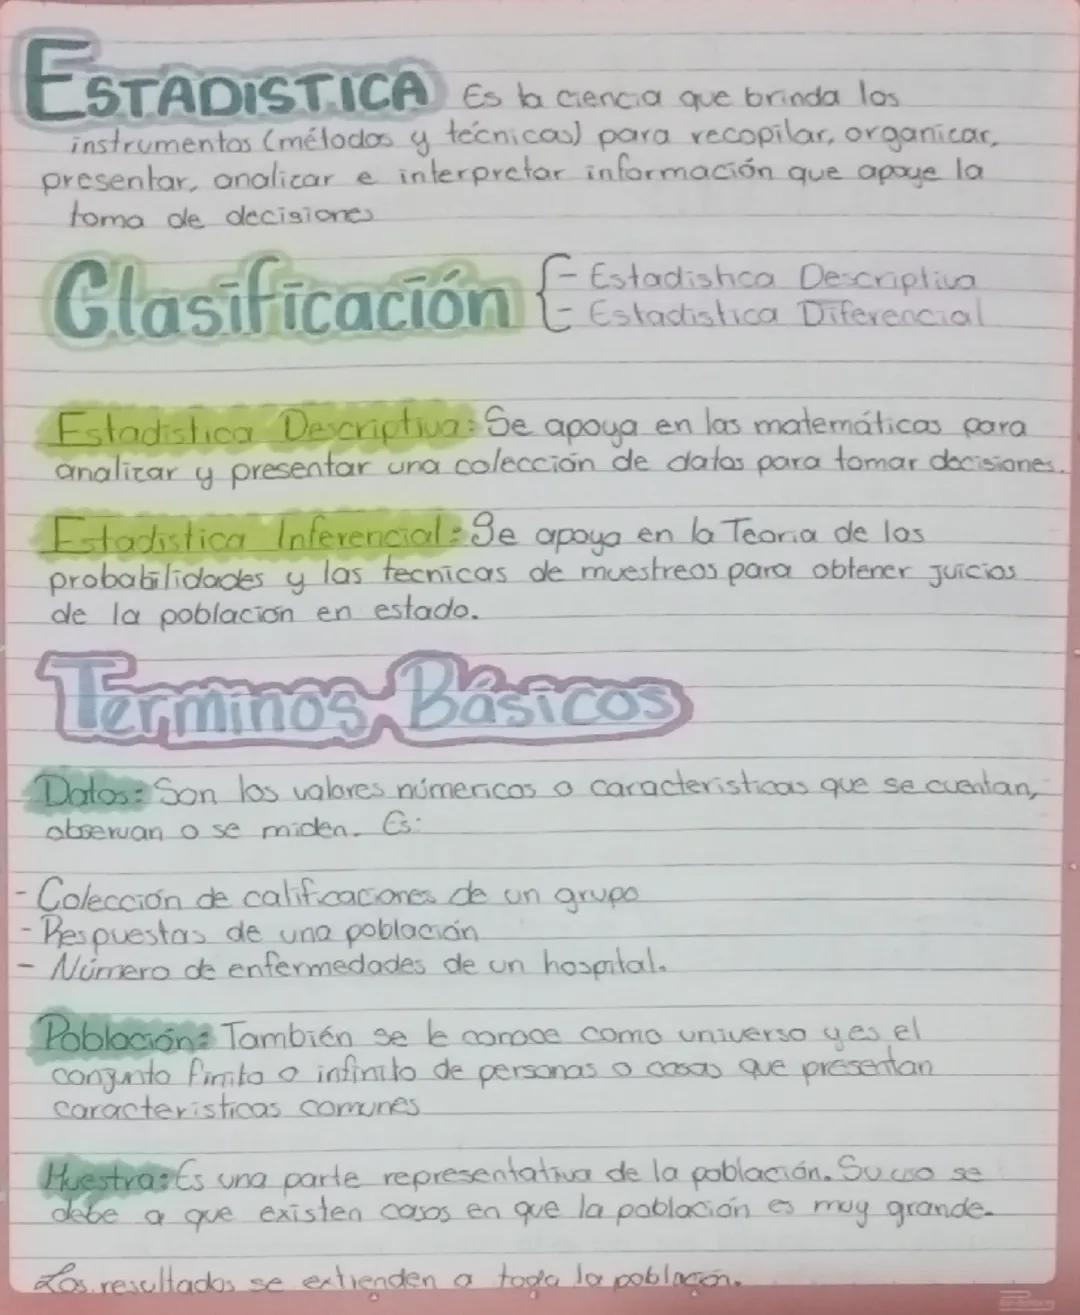 ESTADISTICA Es la ciencia que brinda los
instrumentos (métodos y técnicas) para recopilar, organizar,
presentar, analizar e interpretar información que apoye la
toma de decisiones
Clasificación { - Estadistica Descriptiva
- Estadistica Diferencial
Estadistica Descriptiva: Se apoya en las matemáticas para
analizar y presentar una colección de datos para tomar decisiones.
Estadistica Inferencial: Se apoya en la Teoria de las
probabilidades y las tecnicas de muestreos para obtener juicios
de la población en estado.
Terminos Básicos
Datos: Son los valores númericos o caracteristicas que se cuentan,
observan o se miden. Es:
- Colección de calificaciones de un grupo
- Respuestas de una población
- Número de enfermedades de un hospital.
Población: También se le conoce como universo y es el
conjunto finito o infinito de personas o cosas que presentan
caracteristicas comunes
Muestra: Es una parte representativa de la población. Su uso se
debe a que existen casos en que la población es muy grande.
Los resultados se extienden a toda la población.